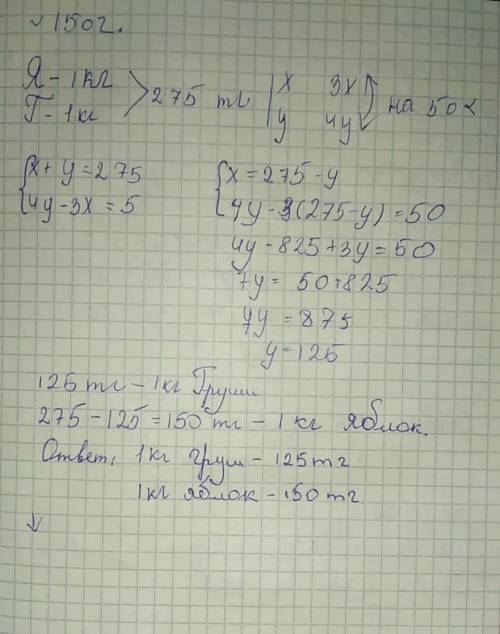 № 1502.
Я - 1кг > 275 тг | x 3x
Г - 1кг | y 4y на 50 <
{ x + y = 275
{ 4y - 3x = 5
{ x = 275 - y
{ 4y - 3(275 - y) = 50
4y - 825 + 3y = 50
7y = 50 + 825
7y = 875
y = 125
125 тг - 1кг Груши
275 - 125 = 150 тг - 1 кг яблок.
Ответ: 1кг груш - 125тг
1кг яблок - 150 тг